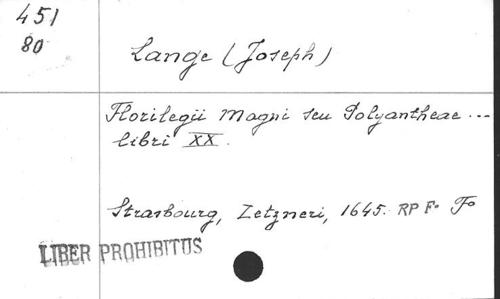 451
80
Lange (Joseph)
Florilegii Magni seu Polyantheae ...
libri XX.
Strasbourg, Zetzneri, 1645. RP F° F°
LIBER PROHIBITUS